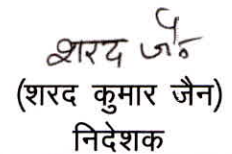 शरद जैन
(शरद कुमार जैन)
निदेशक